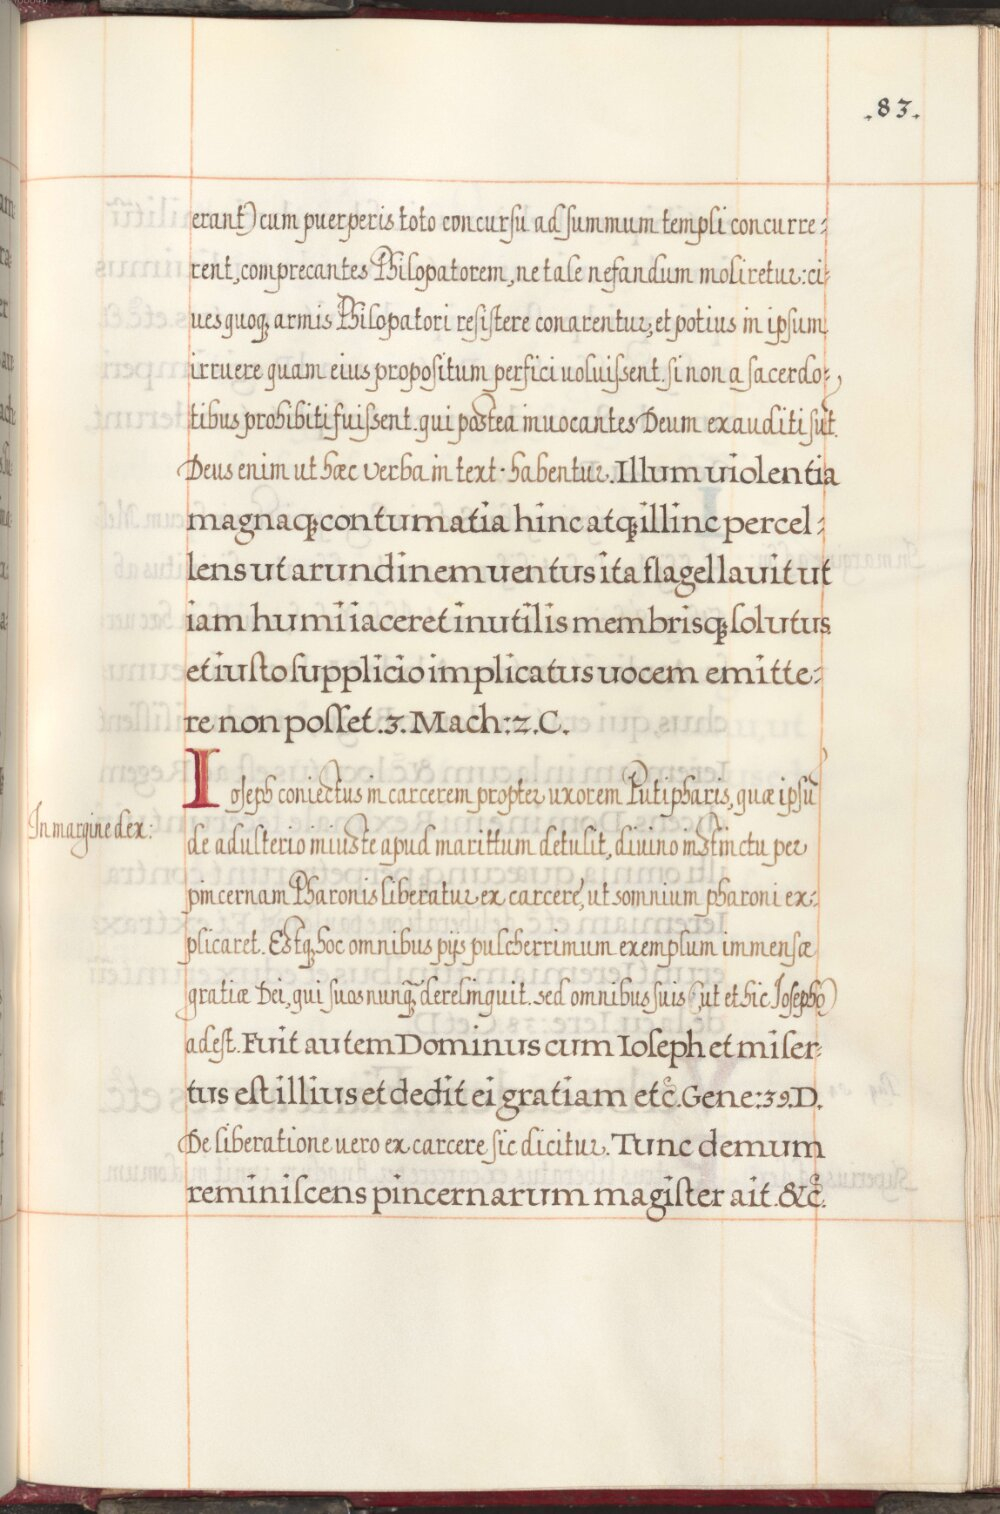 .83.
erant) cum puerperis toto concursu ad summum templi concurre:
rent, comprecantes Philopatorem, ne tale nefandum moliretur: ci:
ues quoq; armis Philopatori resistere conarentur, et potius in ipsum
irruere quam eius propositum perfici uoluissent. si non a sacerdo:
tibus prohibiti fuissent. qui postea inuocantes Deum exauditi sūt.
Deus enim ut hæc verba in text· habentur. Illum uiolentia
magnaq; contumatia hinc atq; illinc percel:
lens ut arundinem uentus ita flagellauit ut
iam humi iaceret inutilis membrisq; solutus
et iusto supplicio implicatus uocem emitte:
re non posset. 3. Mach: 2. C.
Ioseph coniectus in carcerem propter uxorem Putipharis, quæ ipsū
In margine dex:
de adulterio iniuste apud marittum detulit, diuino instinctu per
pincernam Pharonis liberatur ex carcere, ut somnium pharoni ex:
plicaret. Estq; hoc omnibus pijs pulcherrimum exemplum immensæ
gratiæ Dei, qui suos nunq̄; derelinquit. sed omnibus suis (ut et hic Iosepho)
adest. Fuit autem Dominus cum Ioseph et miser:
tus est illius et dedit ei gratiam etc̄. Gene: 39. D.
De liberatione uero ex carcere sic dicitur. Tunc demum
reminiscens pincernarum magister ait. &c̄.